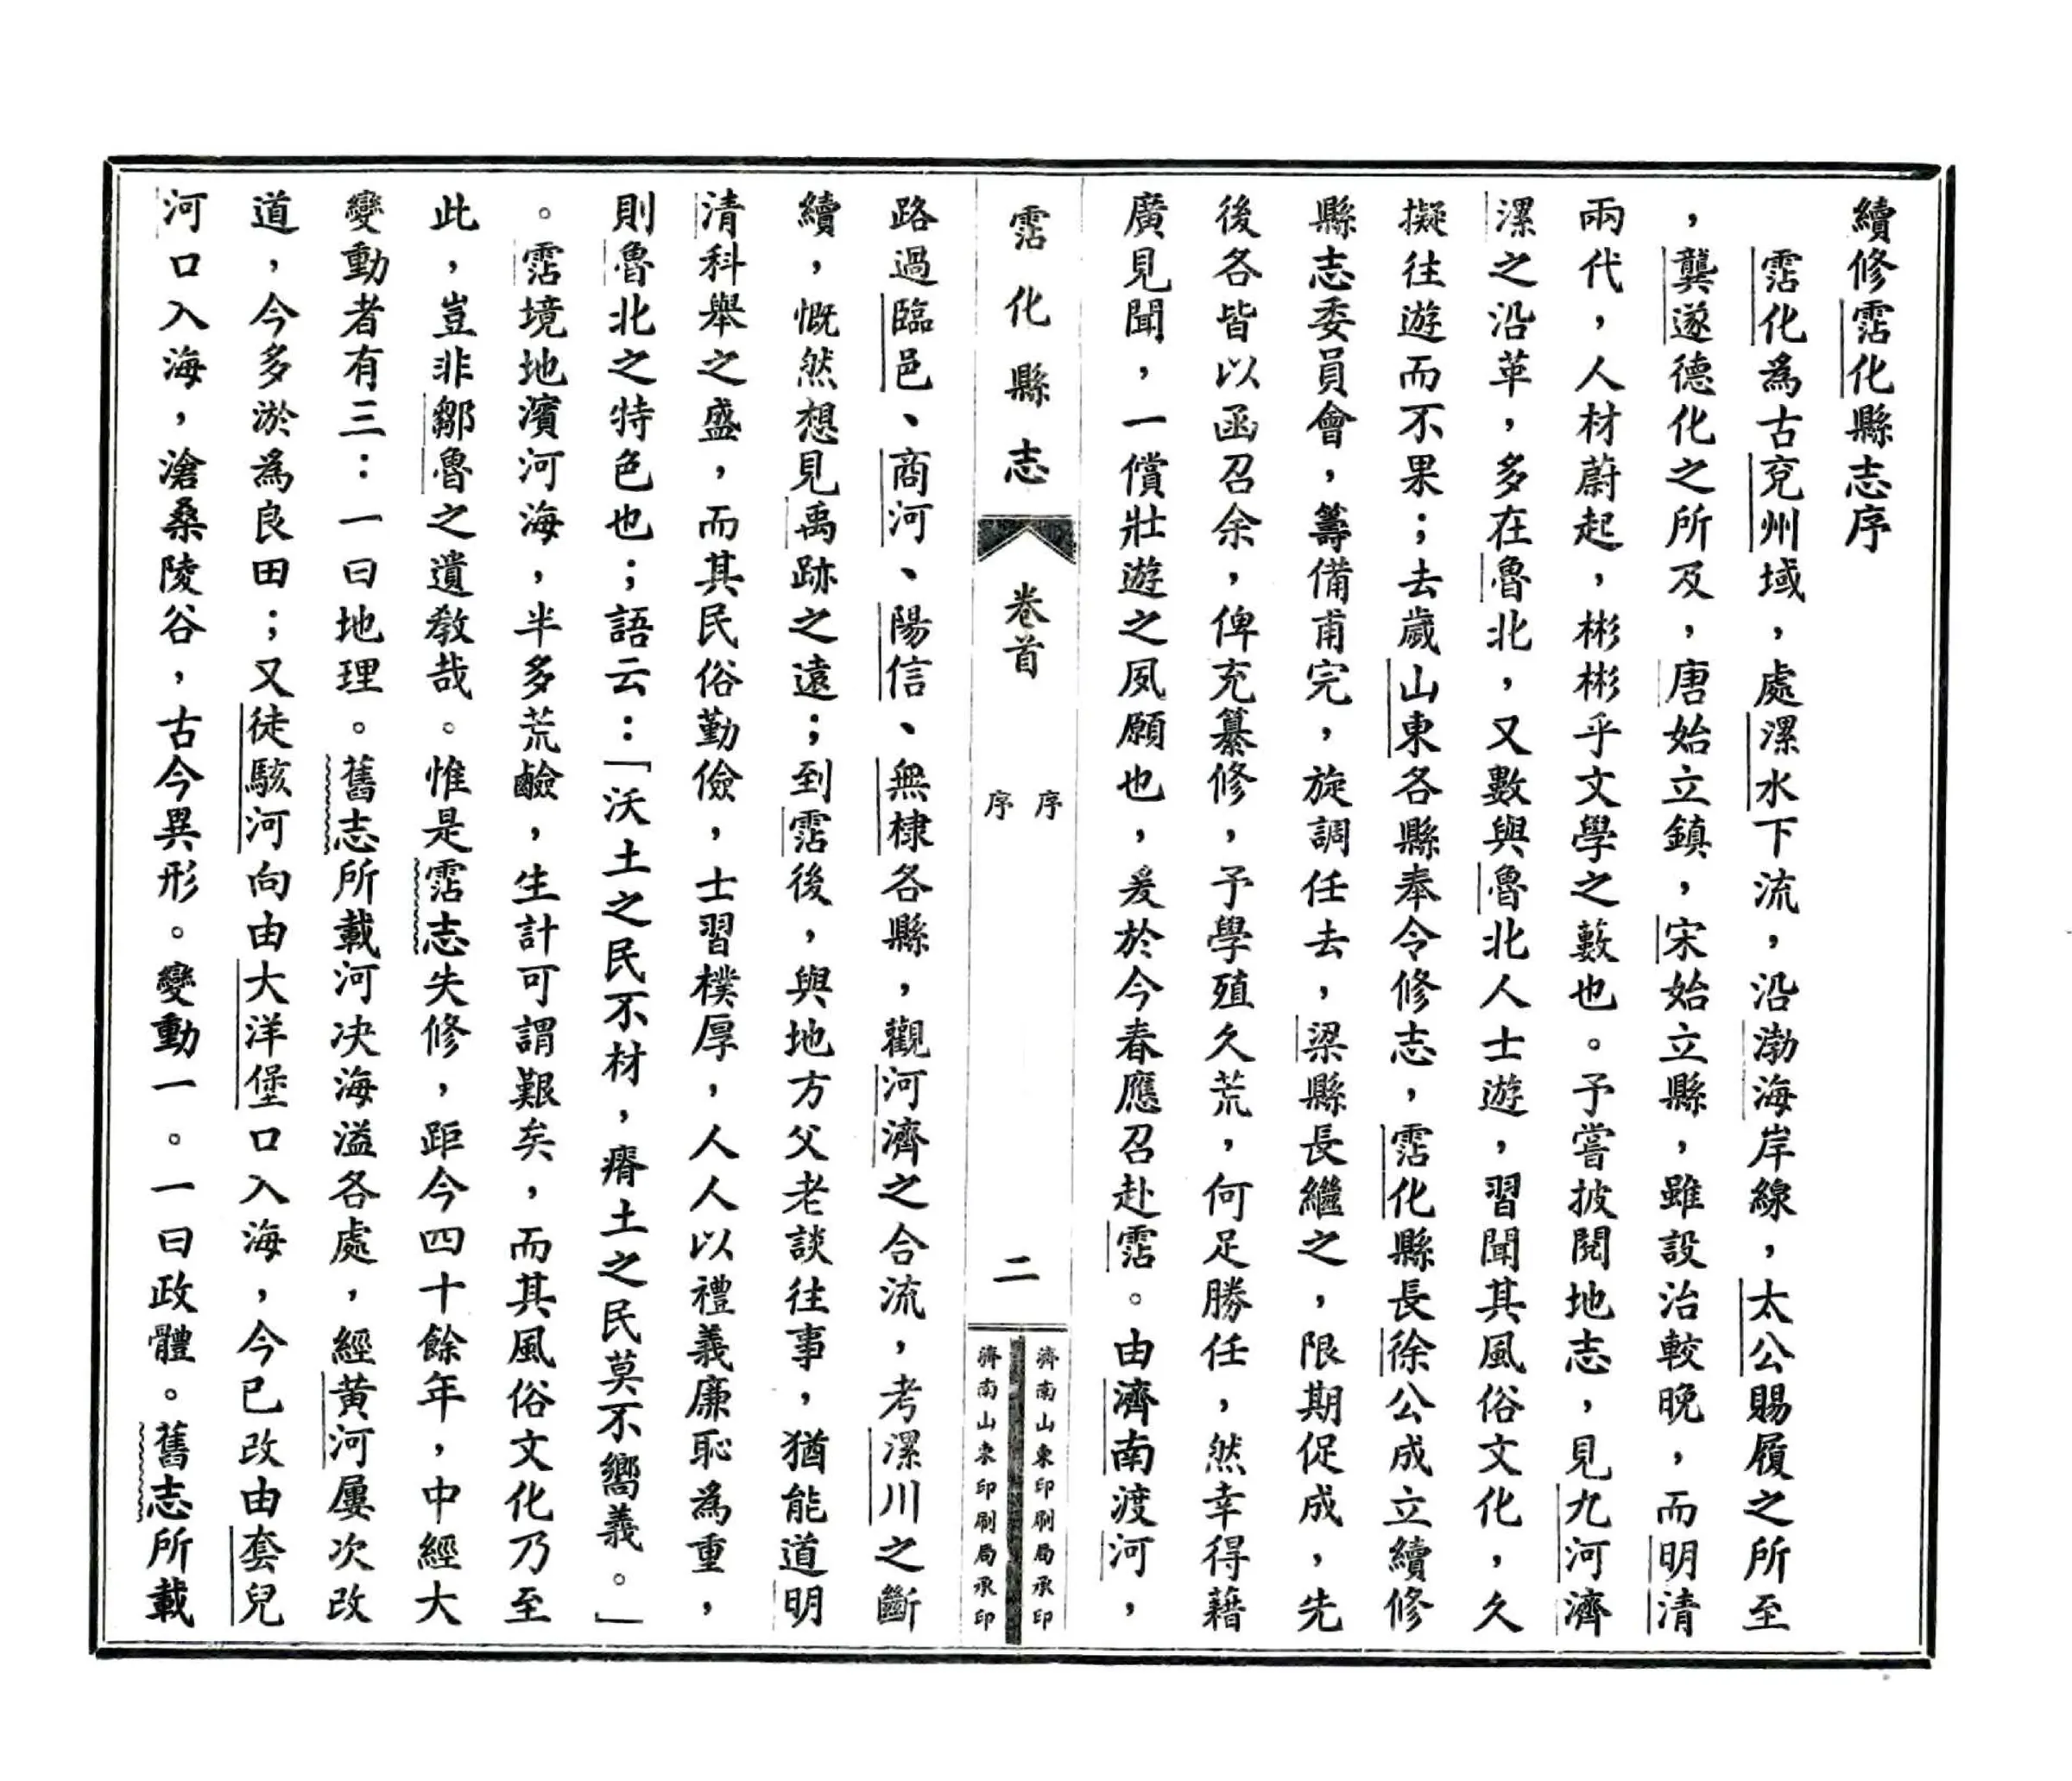 續修霑化縣志序
霑化為古兗州域，處漯水下流，沿渤海岸線，太公賜履之所至
，龔遂德化之所及，唐始立鎮，宋始立縣，雖設治較晚，而明清
兩代，人材蔚起，彬彬乎文學之藪也。予嘗披閱地志，見九河濟
漯之沿革，多在魯北，又數與魯北人士遊，習聞其風俗文化，久
擬往遊而不果；去歲山東各縣奉令修志，霑化縣長徐公成立續修
縣志委員會，籌備甫完，旋調任去，梁縣長繼之，限期促成，先
後各皆以函召余，俾充纂修，予學殖久荒，何足勝任，然幸得藉
廣見聞，一償壯遊之夙願也，爰於今春應召赴霑。由濟南渡河，
霑化縣志
卷首
序
序
二
濟南山東印刷局承印
濟南山東印刷局承印
路過臨邑、商河、陽信、無棣各縣，觀河濟之合流，考漯川之斷
續，慨然想見禹跡之遠；到霑後，與地方父老談往事，猶能道明
清科舉之盛，而其民俗勤儉，士習樸厚，人人以禮義廉恥為重，
則魯北之特色也；語云：「沃土之民不材，瘠土之民莫不嚮義。」
。霑境地濱河海，半多荒鹼，生計可謂艱矣，而其風俗文化乃至
此，豈非鄒魯之遺教哉。惟是霑志失修，距今四十餘年，中經大
變動者有三：一曰地理。舊志所載河決海溢各處，經黃河屢次改
道，今多淤為良田；又徒駭河向由大洋堡口入海，今已改由套兒
河口入海，滄桑陵谷，古今異形。變動一。一曰政體。舊志所載